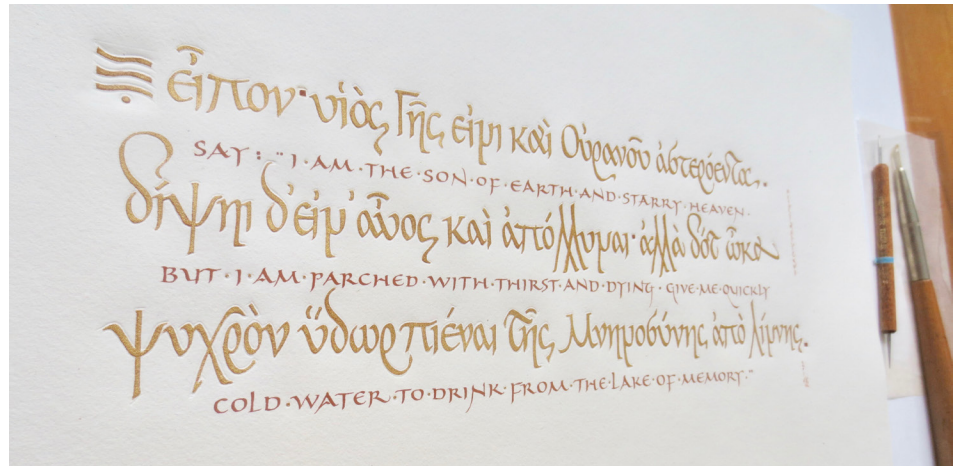 εἶπον· υἱὸς Γῆς εἰμι καὶ Οὐρανοῦ ἀστερόεντος.
SAY: "I·AM·THE·SON·OF·EARTH·AND·STARRY·HEAVEN.
δίψηι δ'εἰμ' αὖος καὶ ἀπόλλυμαι· ἀλλὰ δότ' ὦκα
BUT·I·AM·PARCHED·WITH·THIRST·AND·DYING·GIVE·ME·QUICKLY
ψυχρὸν ὕδωρ πιέναι τῆς Μνημοσύνης ἀπὸ λίμνης.
COLD·WATER·TO·DRINK·FROM·THE·LAKE·OF·MEMORY."